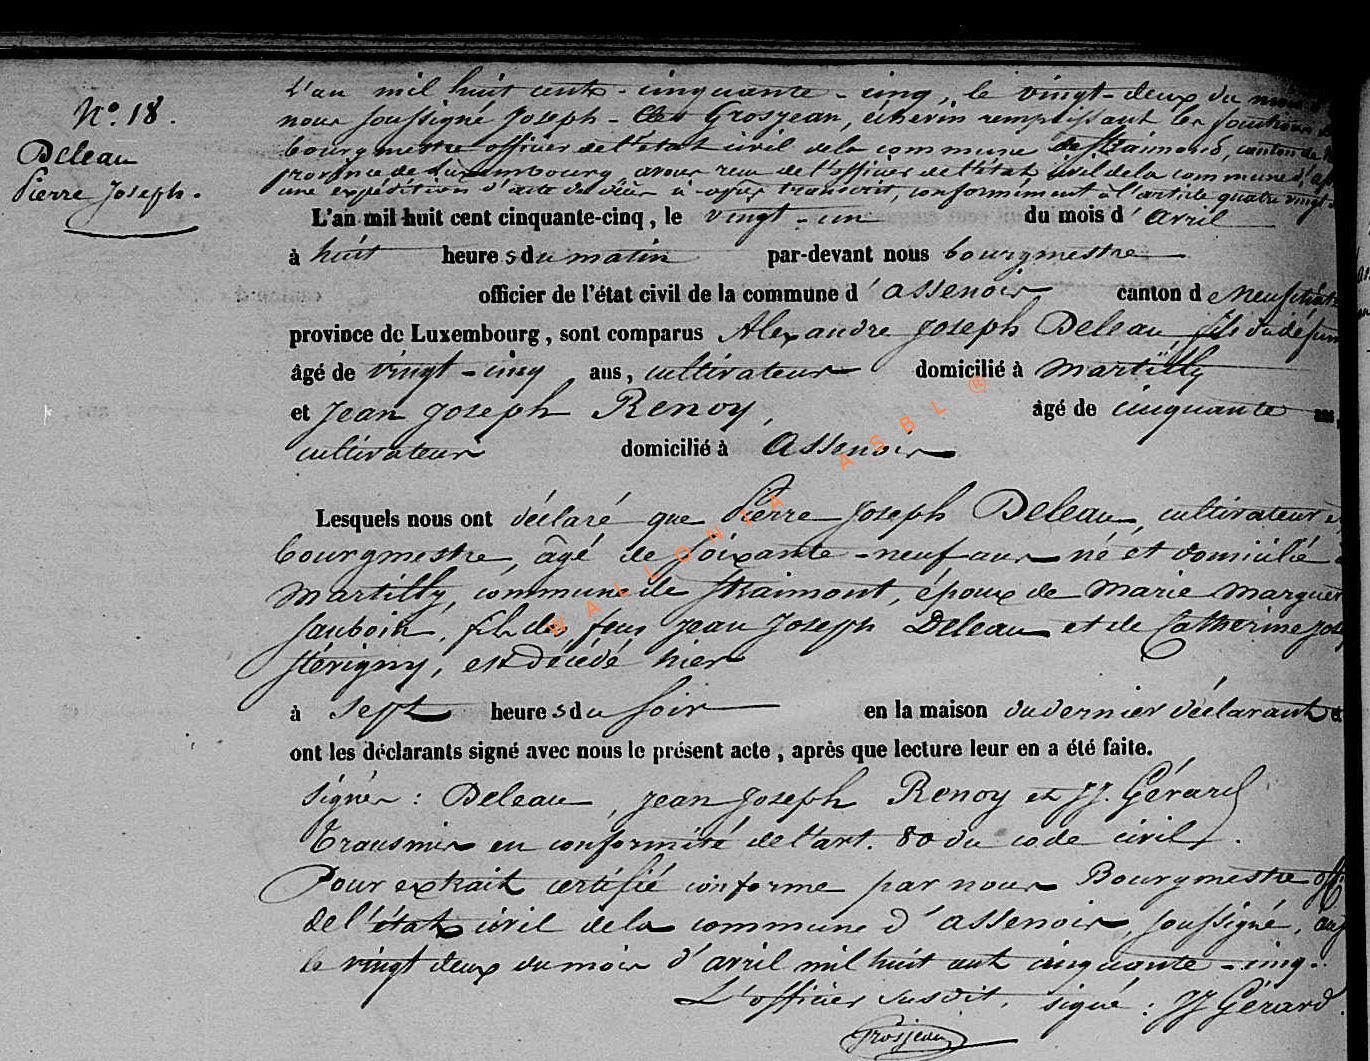 N.° 18.
Deleau
Pierre Joseph.
L'an mil huit cent-cinquante-cinq, le vingt-deux du mois
nous soussigné Joseph- Grosjean, échevin remplissant les fonctions de
bourgmestre officier de l'état civil de la commune de Straimont, canton de
province de Luxembourg, avons reçu de l'officier de l'état civil de la commune d'
une expédition d'acte de décès ci-après transcrit, conformément à l'article quatre vingt
L'an mil huit cent cinquante-cinq, le vingt-un du mois d'avril
à huit heures du matin par-devant nous bourgmestre
officier de l'état civil de la commune d'assenois canton de Neufchât
province de Luxembourg, sont comparus Alexandre Joseph Deleau, fils du défun
âgé de vingt-cinq ans, cultivateur domicilié à Martilly
et Jean Joseph Renoy, âgé de cinquante ans,
cultivateur domicilié à Assenois
Lesquels nous ont déclaré que Pierre Joseph Deleau, cultivateur et
bourgmestre, âgé de soixante-neuf ans né et domicilié à
Martilly, commune de Straimont, époux de Marie Marguer
Sauboin, fils des feus Jean Joseph Deleau et de Catherine Jos
Stévigny, est décédé hier
à Sept heures du soir en la maison du dernier déclarant et
ont les déclarants signé avec nous le présent acte, après que lecture leur en a été faite.
Signés : Deleau, Jean Joseph Renoy et JJ. Gérard
Transmis en conformité de l'art. 80 du code civil.
Pour extrait certifié conforme par nous Bourgmestre offi
de l'état civil de la commune d'assenois, soussigné,
le vingt deux du mois d'avril mil huit cent cinquante-cinq.
L'officier susdit, signé : JJ Gérard.
Grosjean
WALLONIA ASBL ®